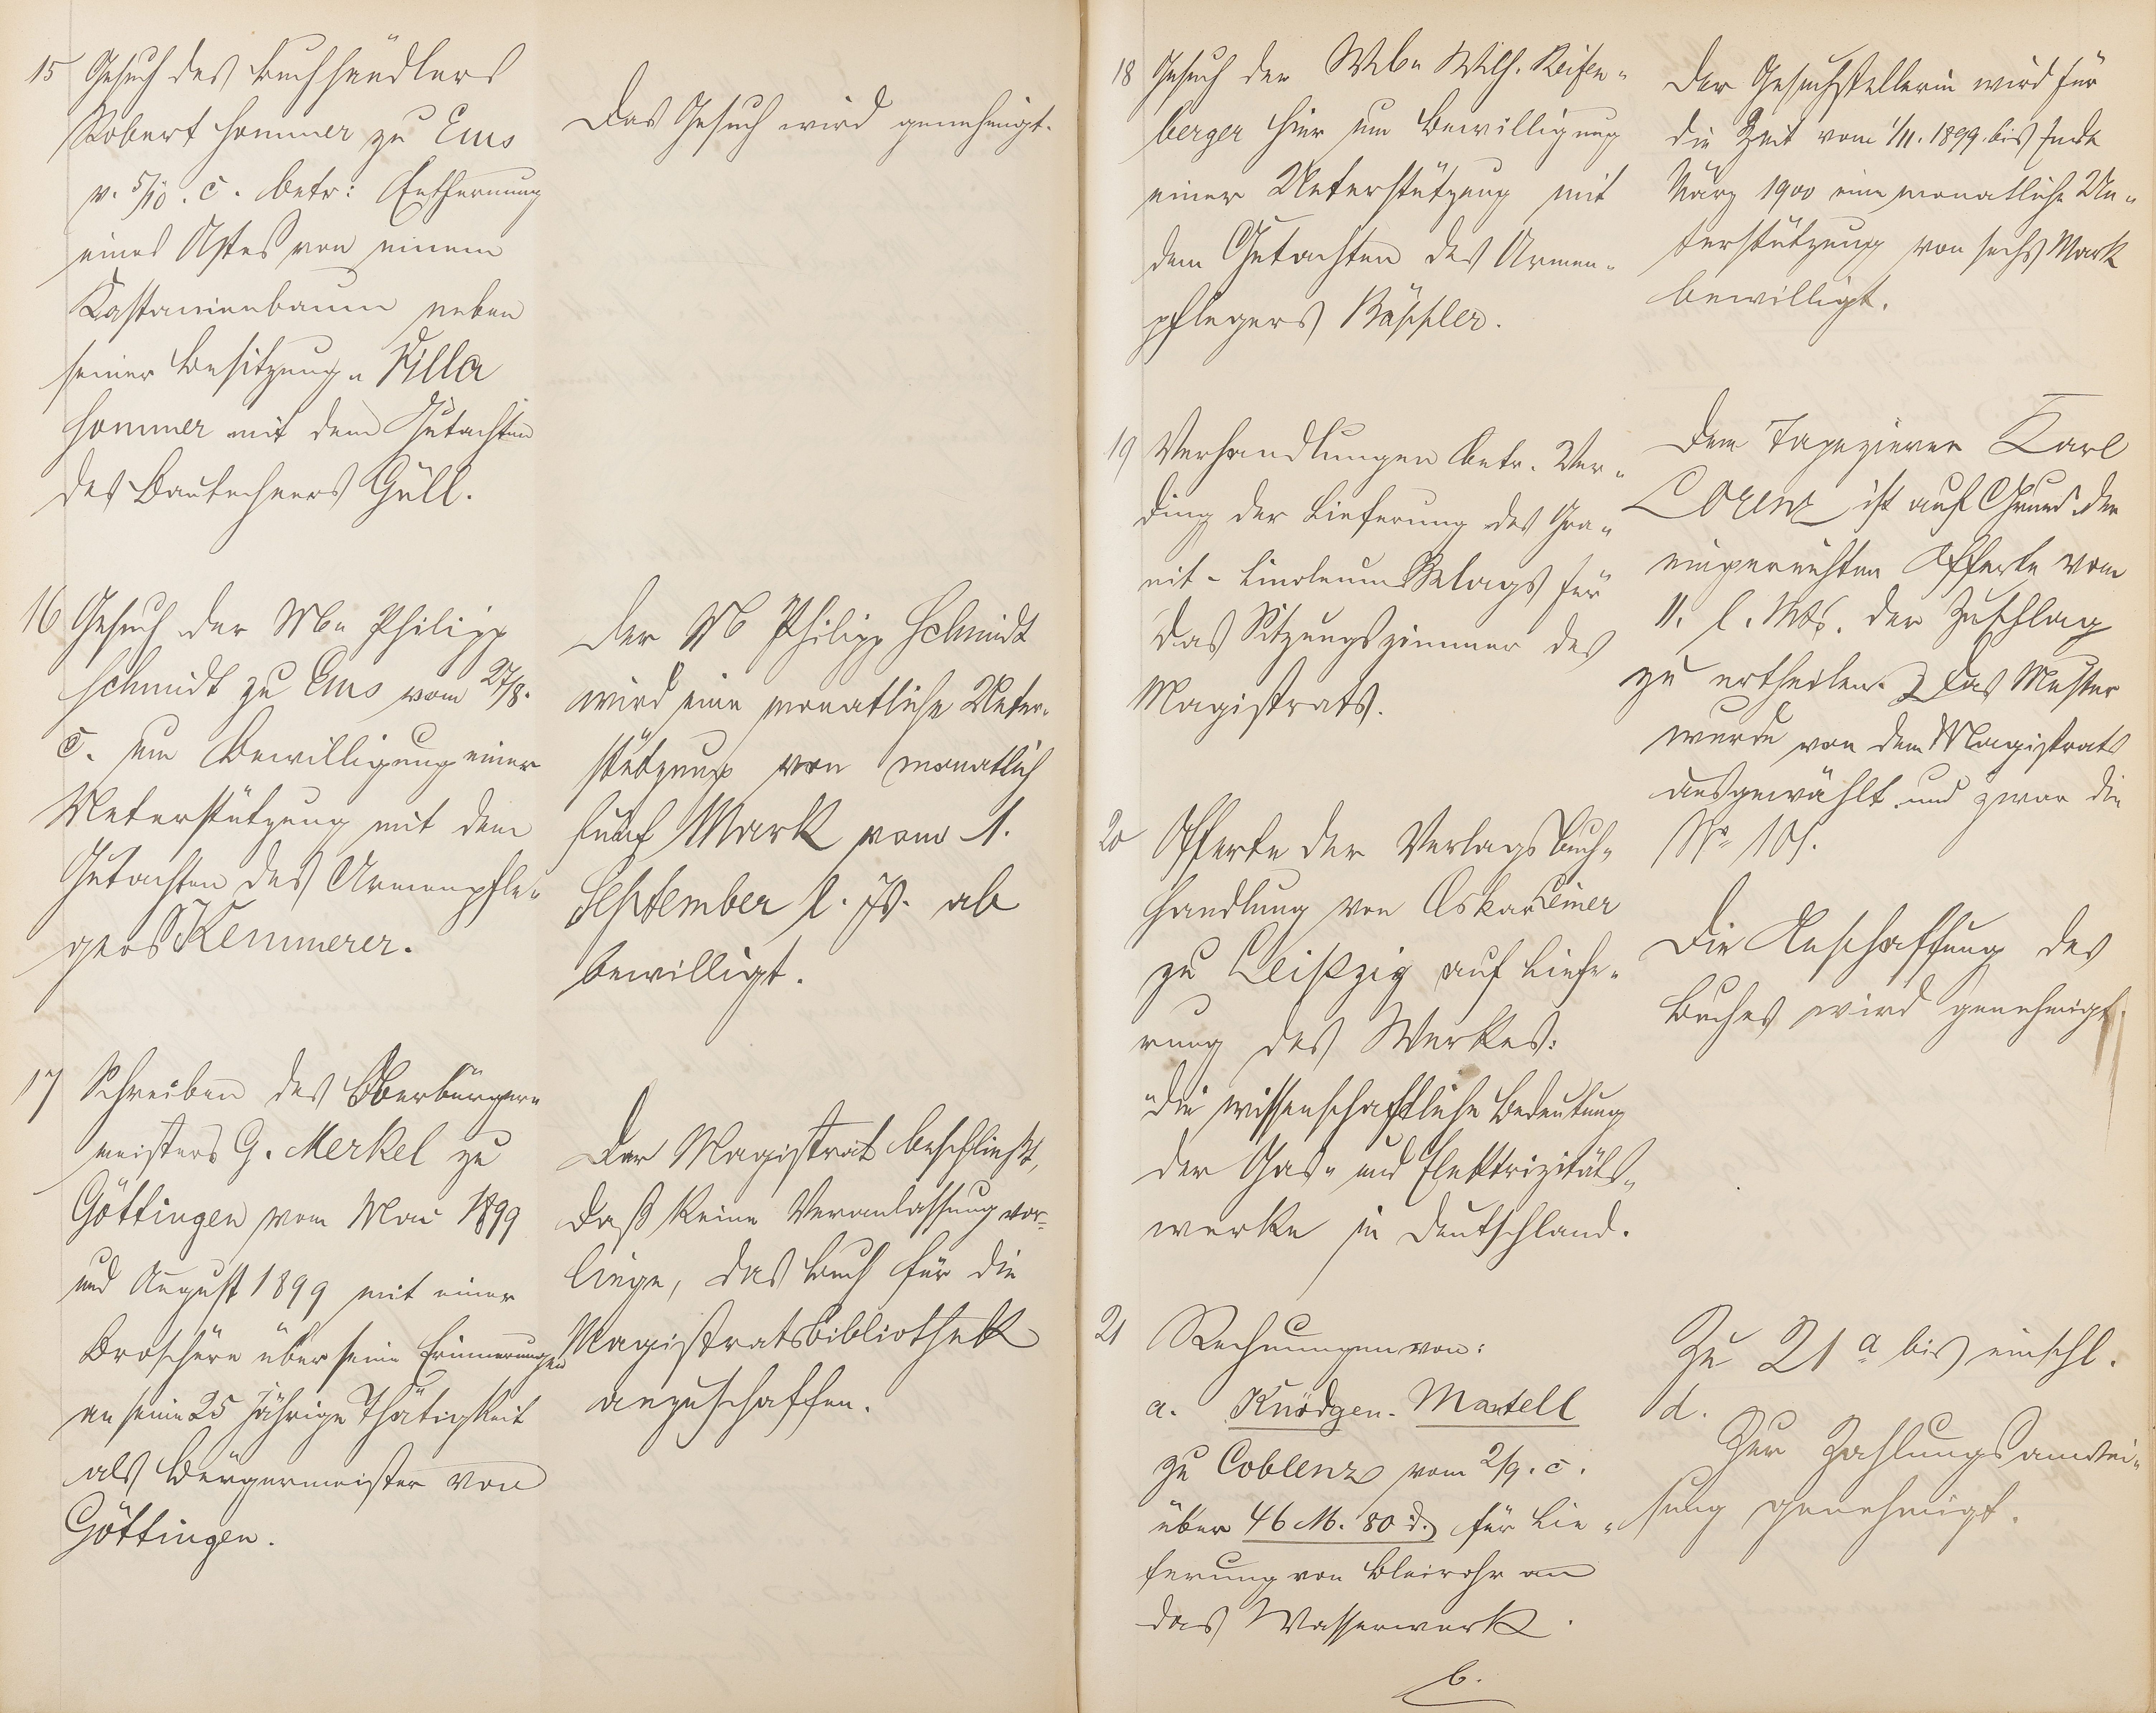 15 Gesuch des Buchhändlers
Robert Sommer zu Ems
v. 5/10. c. betr: Entfernung
eines Astes von einem
Kastanienbaum neben
seiner Besitzung „Villa
Sommer mit dem Gutachten
des Bautechners Güll.
Das Gesuch wird genehmigt.
16 Gesuch der Ww Philipp
Schmidt zu Ems vom 27/8.
c. um Bewilligung einer
Unterstützung mit dem
Gutachten des Armenpfle„
gers Kemmerer.
Der Ww Philipp Schmidt
wird eine monatliche Unter„
stützung von monatlich
fünf Mark vom 1.
September l. Js. ab
bewilligt.
17 Schreiben des Oberbürger„
meisters G. Merkel zu
Göttingen vom Mai 1899
und August 1899 mit einer
Broschüre über seine Erinnerungen
an seine 25 jährige Thätigkeit
als Bürgermeister von
Göttingen.
Der Magistrat beschließt,
daß keine Veranlassung vor„
liege, das Buch für die
Magistratsbibliothek
anzuschaffen.
18 Gesuch der Wwe Wilh. Reifen„
berger hier um Bewilligung
einer Unterstützung mit
dem Gutachten des Armen„
pflegers Bässler.
Der Gesuchstellerin wird für
die Zeit vom 1/11. 1899 bis Ende
März 1900 eine monatliche Un„
terstützung von sechs Mark
bewilligt.
19 Verhandlungen betr. Ver„
ding der Lieferung des Gra„
nit-Linoleum Belags für
das Sitzungszimmer des
Magistrats.
Dem Tapezierer Karl
Lorenz ist auf Grund der
eingereichten Offerte vom
11. l. Mts. der Zuschlag
zu ertheilen. Das Muster
wurde von dem Magistrats
ausgewählt und zwar die
No 101.
20 Offerte der Verlagsbuch„
handlung von Oskar Leiner
zu Leipzig auf Liefe„
rung des Werkes:
„Die wissenschaftliche Bedeutung
der Gas„ und Elektrizitäts„
werke in Deutschland.
Die Anschaffung des
Buches wird genehmigt.
21 Rechnungen von:
a. Knödgen-Martell
zu Coblenz vom 2/9. c.
über 46 M. 80 d. für Lie„
ferung von Bleirohr an
das Wasserwerk.
b.
Zu 21 a bis einschl.
d.
Zur Zahlungsanwei„
sung genehmigt.